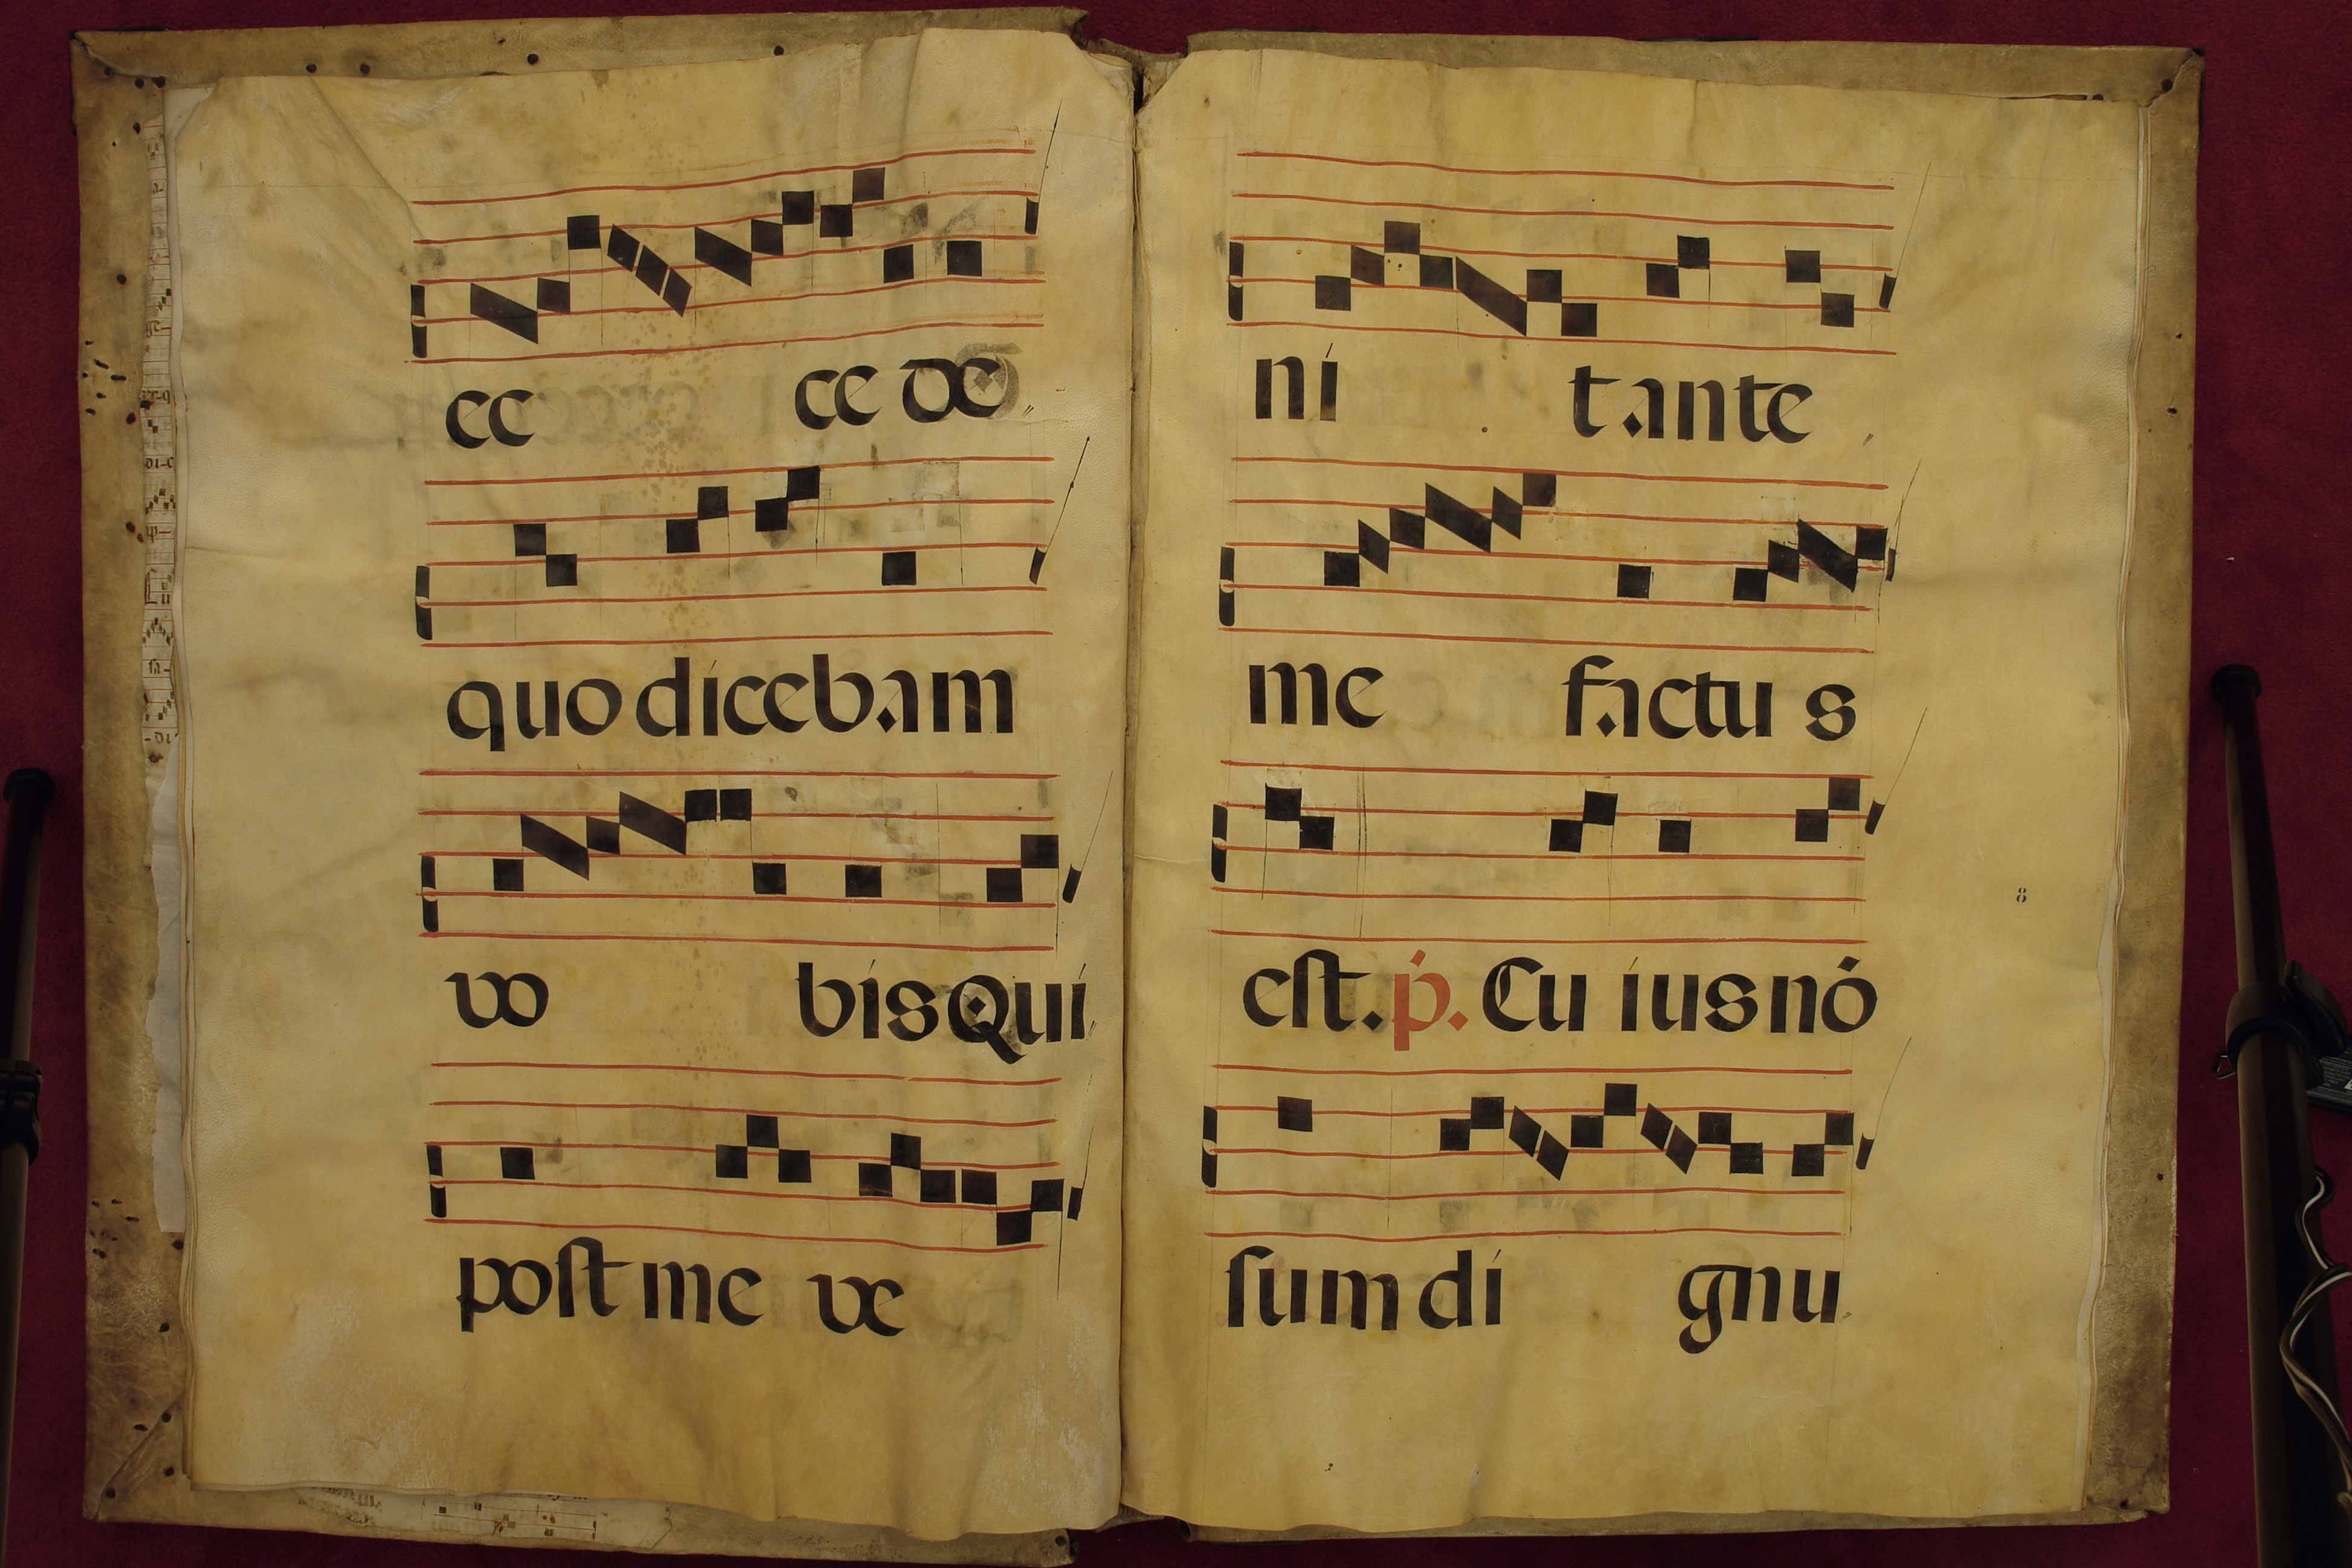 ec ce de
quo dicebam
vo bis Qui
post me ve
ni t ante
me factu s
est. p. Cu ius nó
8
sum di gnu